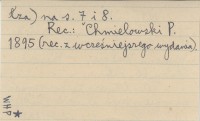 łza) na s. 7 i 8.
Rec.: Chmielowski P.
1895 (rec. z wcześniejszego wydania).
WHP
*